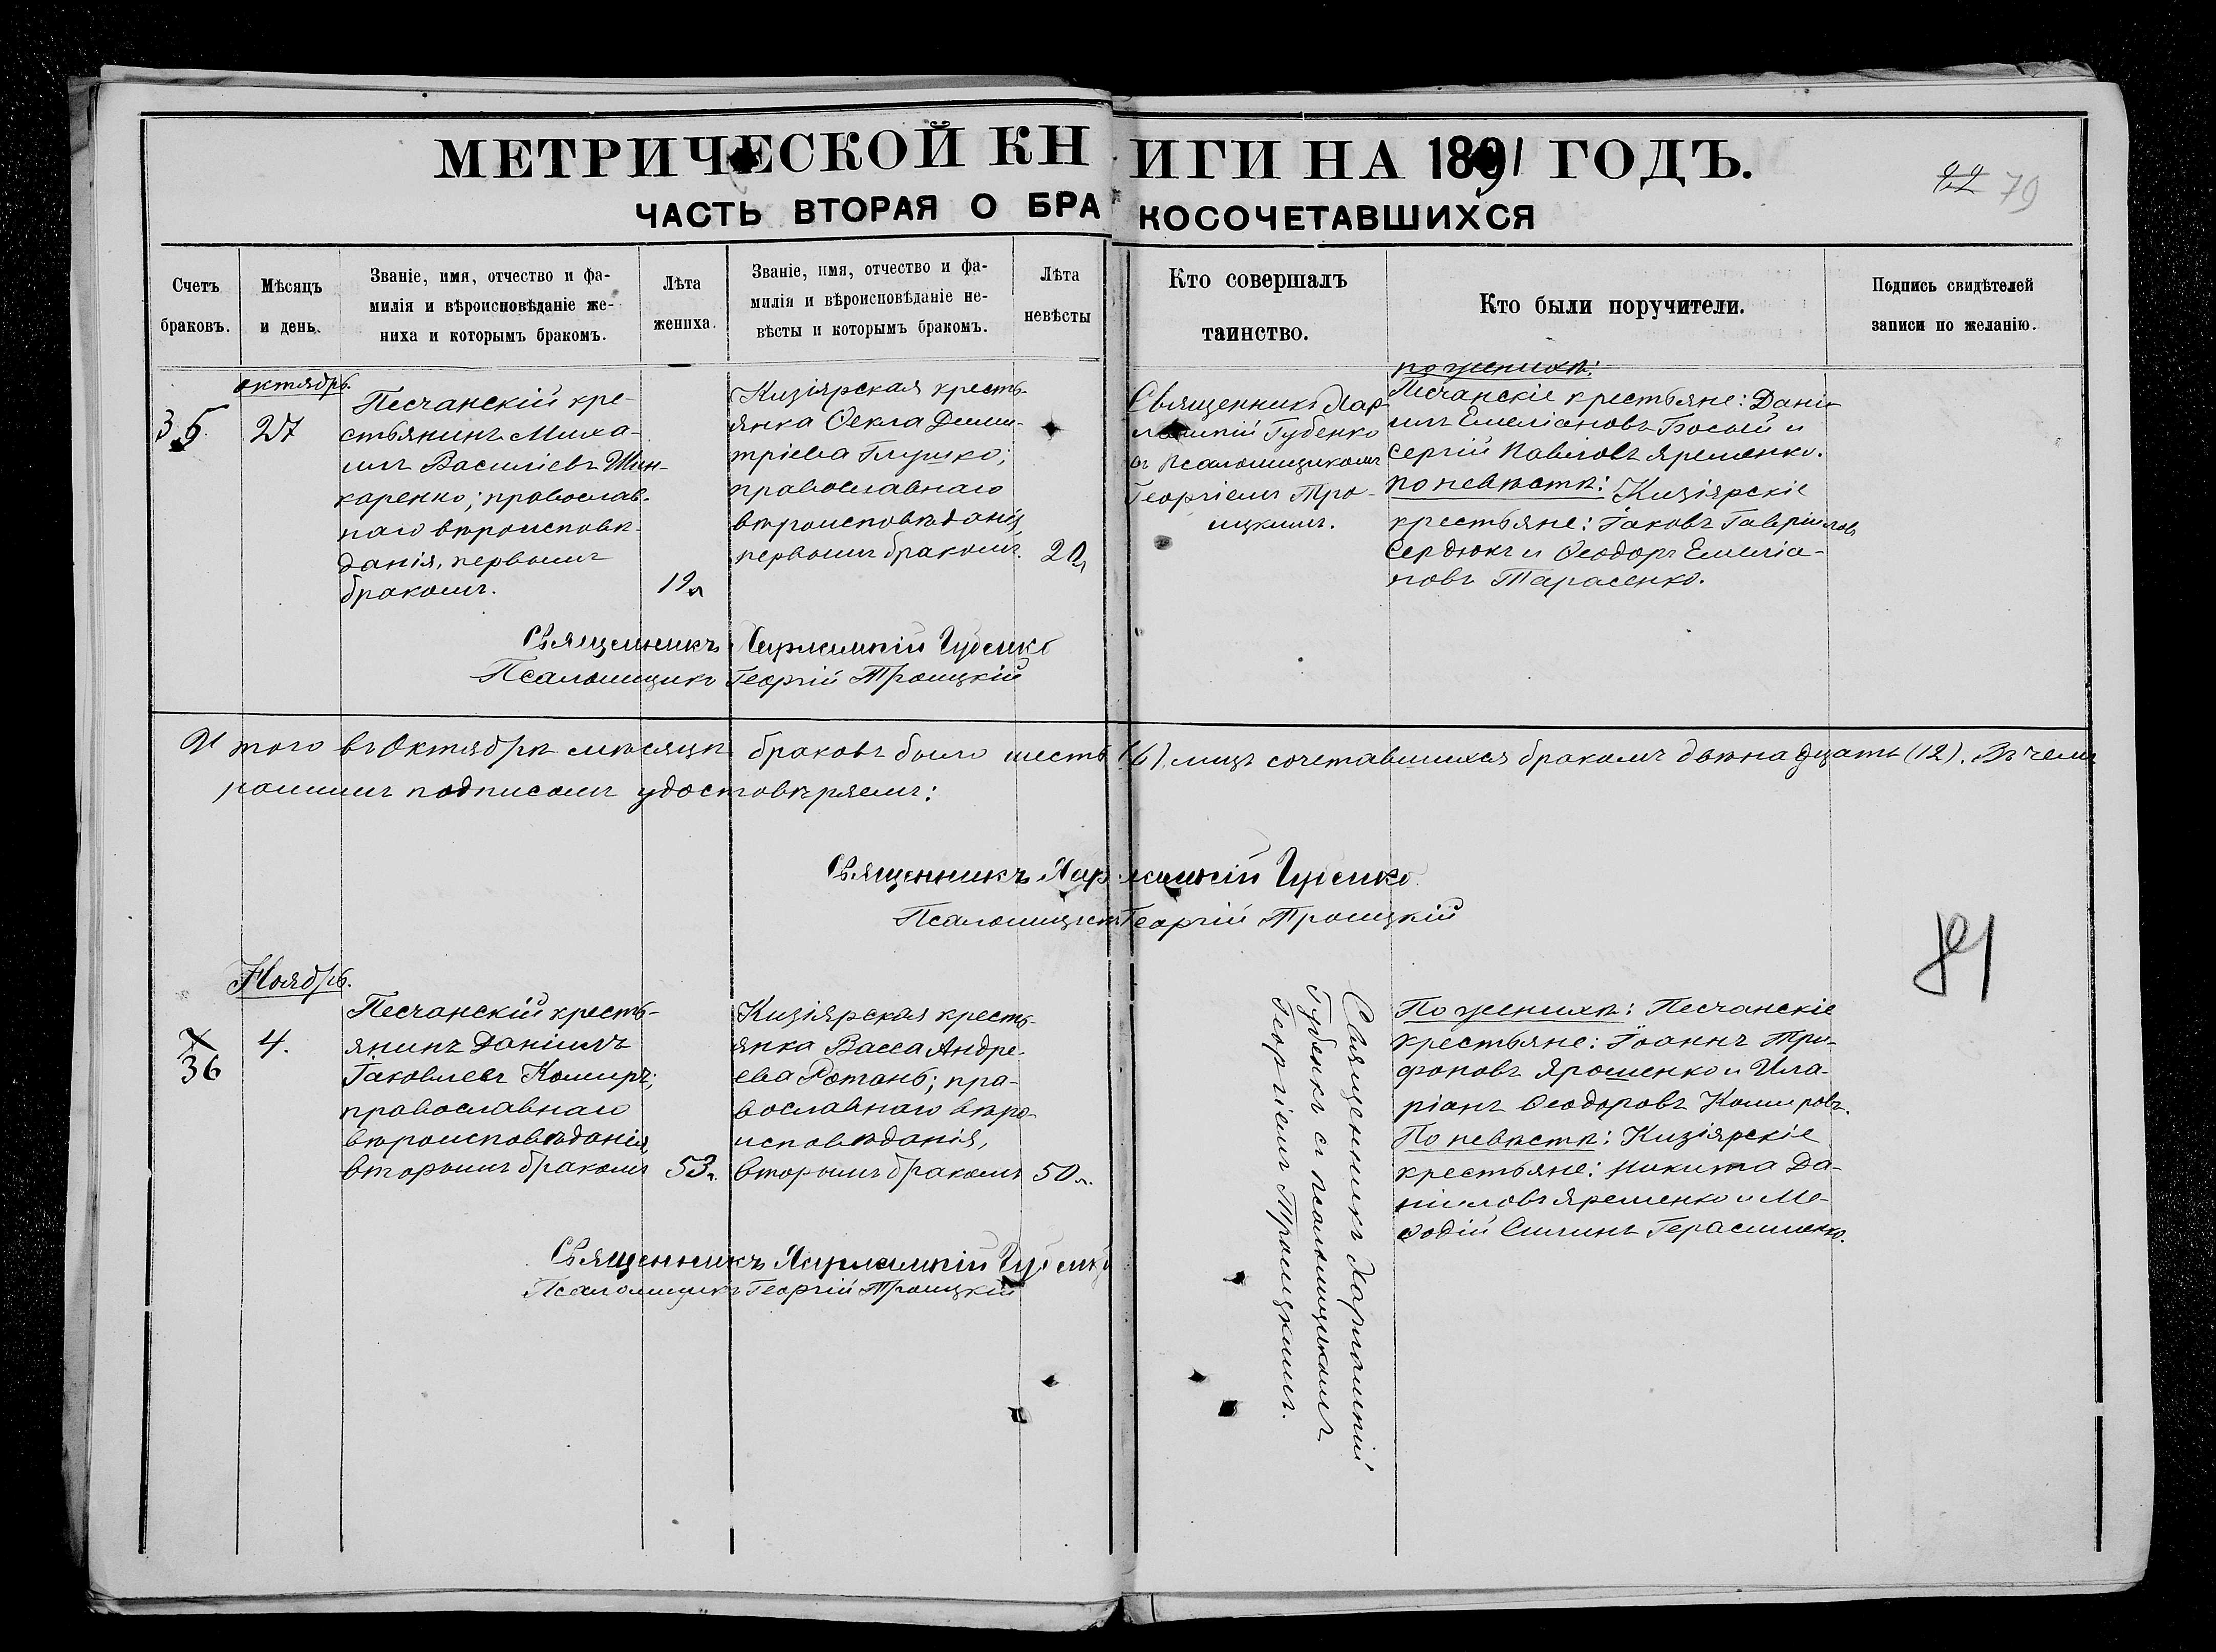 МЕТРИЧЕСКОЙ КНИГИ НА 1891 ГОДЪ.
ЧАСТЬ ВТОРАЯ О БРАКОСОЧЕТАВШИХСЯ
22 79
Счетъ
браковъ.
Мѣсяцъ
и день.
Званіе, имя, отчество и фа-
милія и вѣроисповѣданіе же-
ниха и которымъ бракомъ.
Лѣта
жениха.
Званіе, имя, отчество и фа-
милія и вѣроисповѣданіе не-
вѣсты и которымъ бракомъ.
Лѣта
невѣсты
Кто совершалъ
таинство.
Кто были поручители.
Подпись свидѣтелей
записи по желанію.
октябрь.
35.
27
Песчанскій кре-
стьянинъ Миха-
илъ Василіевъ Шин-
каренко; православ-
наго вѣроисповѣ-
данія, первымъ
бракомъ.
19л
Кизіярская кресть-
янка Ѳекла Дими-
тріева Глушко;
православнаго
вѣроисповѣданія,
первымъ бракомъ.
20,
Священникъ Хар-
лампій Губенко
съ псаломщикомъ
Георгіемъ Тро-
ицкимъ.
по женихѣ:
Песчанскіе крестьяне: Дані-
илъ Емеліановъ Босый и
Сергій Павловъ Яременко.
по невѣстѣ: Кизіярскіе
крестьяне: Іаковъ Гавріиловъ
Сердюкъ и Ѳеодоръ Емеліа-
новъ Тарасенко.
Священникъ Харлампій Губенко
Псаломщикъ Георгій Троицкій
Итого въ Октябрѣ мѣсяцѣ браковъ было шесть (6) лицъ сочетавшихся бракомъ двѣнадцать (12). Въ чемъ
нашимъ подписомъ удостовѣряемъ:
Священникъ Харлампій Губенко
Псаломщикъ Георгій Троицкій
Ноябрь.
36
4.
Песчанскій кресть-
янинъ Даніилъ
Іаковлевъ Комиръ;
православнаго
вѣроисповѣданія,
вторымъ бракомъ
53л.
Кизіярская кресть-
янка Васса Андре-
ева Ротань; пра-
вославнаго вѣро-
исповѣданія,
вторымъ бракомъ
50л.
Священникъ Харлампій
Губенко съ псаломщикомъ
Георгіемъ Троицкимъ.
По женихѣ: Песчанскіе
крестьяне: Іоаннъ Три-
фоновъ Ярошенко и Ила-
ріанъ Ѳеодоровъ Комировъ.
По невѣстѣ: Кизіярскіе
крестьяне: Никита Да-
ніиловъ Яременко и Ме-
ѳодій Силинъ Герасименко.
Священникъ Харлампій Губенко
Псаломщикъ Георгій Троицкій